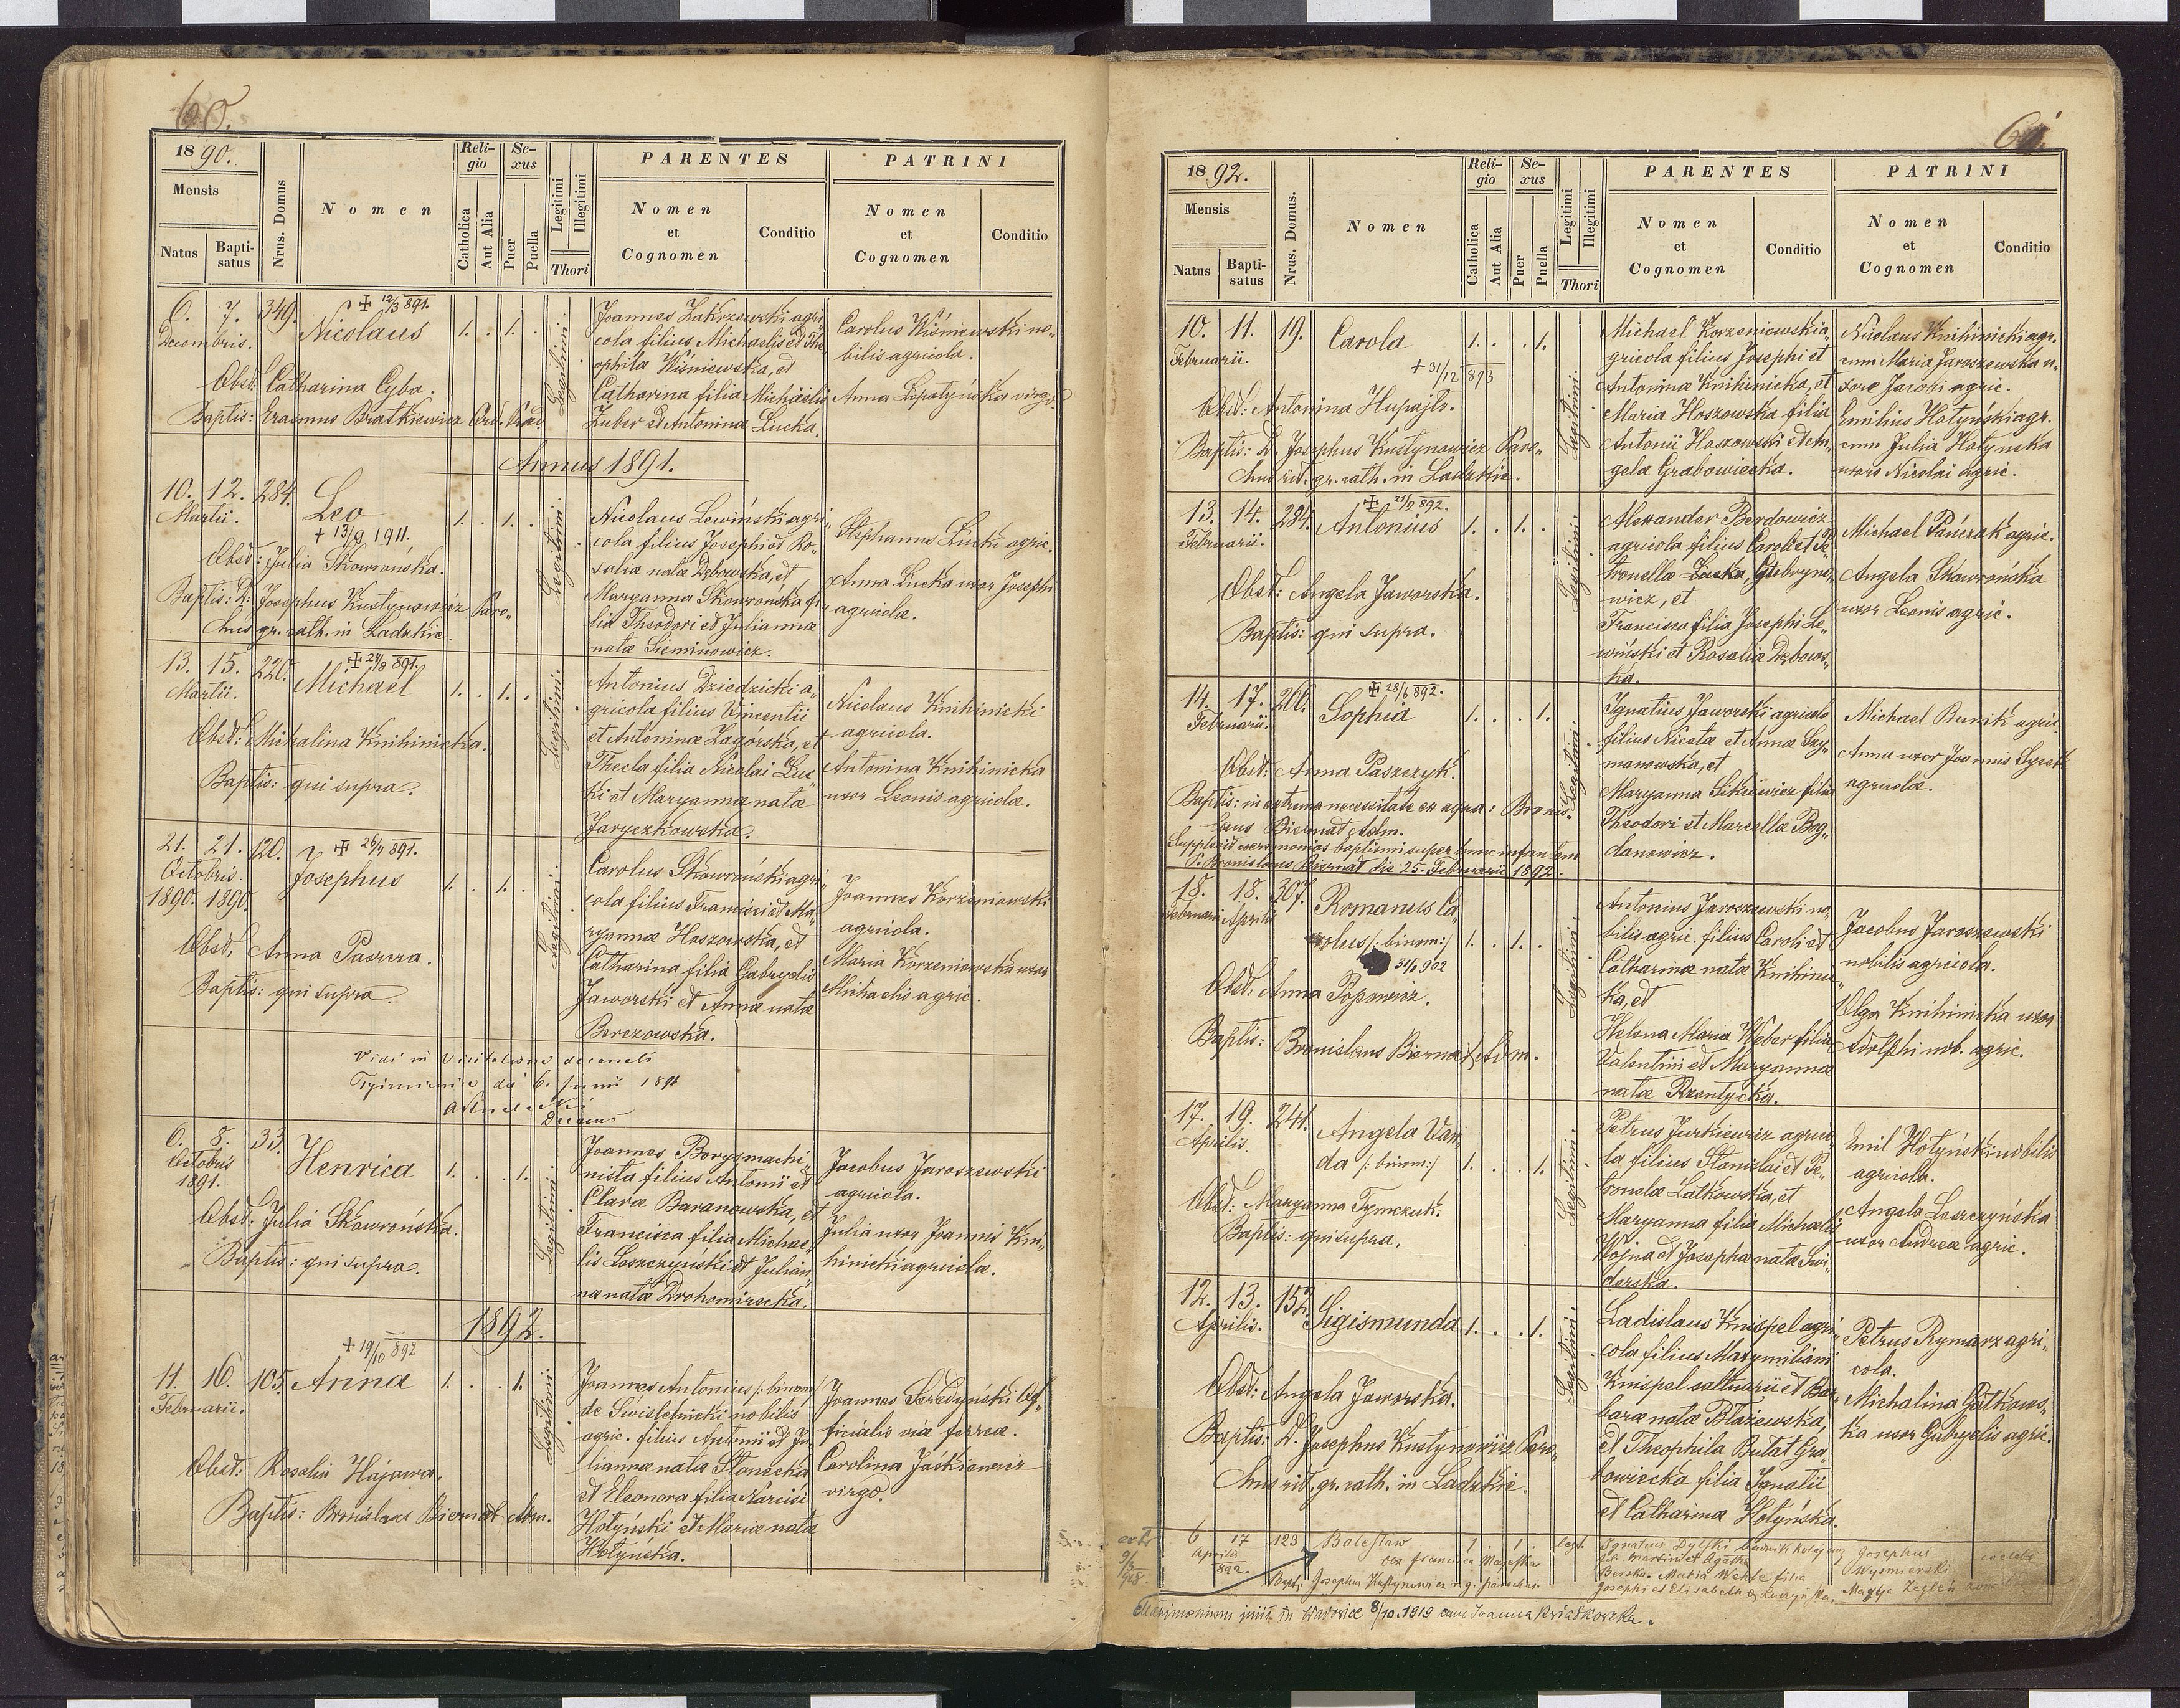 60.
1890.
Mensis
Natus
Bapti-
satus
Nrus. Domus
Nomen
Reli-
gio
Catholica
Aut Alia
Se-
xus
Puer
Puella
Legitimi
Illegitimi
Thori
PARENTES
Nomen
et
Cognomen
Conditio
PATRINI
Nomen
et
Cognomen
Conditio
6. 7. 349.
Decembris.
✠ 12/3 891.
Nicolaus
1. . 1. .
Legitimi.
Obst: Catharina Cyba.
Baptis: Erasmus Bratkiewicz
Joannes Zakrzewski agri„
cola filius Michaelis et The„
ophila Wiśniewska, et
Catharina filia Michaelis
Zuber et Antonina Łucka.
Carolus Wiśniewski no„
bilis agricola.
Anna Lopatyńska virgo.
Annus 1891.
10. 12. 284.
Martii.
Leo
+ 13/9 1911.
1. . 1. .
Legitimi.
Obst: Julia Skowrońska.
Baptis: D: Josephus Kustynowicz Paro„
chus gr. cath. in Ladzkie.
Nicolaus Lewiński agri„
cola filius Josephi et Ro„
salia nata Dębowska, et
Maryanna Skowrońska fi„
lia Theodori et Julianna
nata Sieminowicz.
Stephanus Łucki agric.
Anna Łucka uxor Josephi
agricolæ.
13. 15. 220.
Martii.
✠ 24/8 891.
Michael
1. . 1. .
Legitimi.
Obst: Michalina Knihinicka.
Baptis: qui supra.
Antonius Dziedzicki a„
gricola filius Vincentii
et Antoninæ Zagórska, et
Thecla filia Nicolai Łuc„
ki et Maryannæ nata
Jaryczkowska.
Nicolaus Knihinicki
agricola.
Antonina Knihinicka
uxor Leonis agricolæ.
21. 21. 120.
Octobris.
1890. 1890.
✠ 26/4 891.
Josephus
1. . 1. .
Legitimi.
Obst. Anna Paszcza.
Baptis: qui supra.
Carolus Skowroński agri„
cola filius Francisci et Ma„
ryannæ Hoszowska, et
Catharina filia Gabryelis
Jaworski et Annæ nata
Berezowska.
Joannes Korzeniowski
agricola.
Maria Korzeniowska uxor
Michaelis agric.
Vidi in Visitatione decanali
die 6. Junii 1891
Decanus
6. 8. 33.
Octobris
1891.
Henrica
1. . . 1.
Legitimi.
Obst: Julia Skowrońska.
Baptis: qui supra.
Joannes Borys machi„
nista filius Antonii et
Claræ Baranowska, et
Francisca filia Michae„
lis Leszczyński et Julian„
næ nata Drohomirecka.
Jacobus Jaroszewski
agricola.
Julia uxor Joannis Kni„
hinicki agricolæ.
1892.
11. 16. 105.
Februarii.
+ 19/10 892
Anna
1. . . 1.
Legitimi.
Obst: Rosalia Hajowa.
Baptis: Bronislaus Biernat Adm.
Joannes Antonius /: binom:/
de Swistelnicki nobilis
agric. filius Antonii et Ju„
liannæ nata Słonecka
et Eleonora filia Narcisi
Hołyński et Mariæ nata
Hołyńska.
Joannes Seredyński Of„
ficialis viæ ferreæ.
Carolina Jaśkiewicz
virgo.
61.
1892.
Mensis
Natus
Bapti-
satus
Nrus. Domus.
Nomen
Reli-
gio
Catholica
Aut Alia
Se-
xus
Puer
Puella
Legitimi
Illegitimi
Thori
PARENTES
Nomen
et
Cognomen
Conditio
PATRINI
Nomen
et
Cognomen
Conditio
10. 11. 19.
Februarii.
Carola
+ 31/12 893
1. . . 1.
Legitimi.
Obst: Antonina Hupajło.
Baptis: D. Josephus Kustynowicz Paro„
chus rit. gr. cath. in Ladzkie.
Michael Korzeniowski a„
gricola filius Josephi et
Antoninæ Knihinicka, et
Maria Hoszowska filia
Antonii Hoszowski et An„
gela Grabowiecka.
Nicolaus Knihinicki agr.
cum Maria Jaroszewska u„
xore Jacobi agric.
Emilius Hołyński agr.
cum Julia Hołyńska
uxore Nicolai agric.
13. 14. 284.
Februarii.
✠ 21/2 892.
Antonius
1. . 1. .
Legitimi.
Obst: Angela Jaworska.
Baptis: qui supra.
Alexander Berdowicz
agricola filius Caroli et Pe„
tronellæ Łucka, Gtebryno„
wicz, et
Francisca filia Josephi Le„
wiński et Rosalia Dębows„
ka.
Michael Pańczak agric.
Angela Skowrońska
uxor Leonis agric.
14. 17. 266.
Februarii.
✠ 28/6 892.
Sophia
1. . . 1.
Legitimi.
Obst: Anna Paszczyk.
Baptis: in extrema necessitate ex aqua: Bronis„
laus Biernat Adm.
Supplevit ceremonias baptismi super hunc infantem
P. Bronislaus Biernat die 25. Februarii 1892.
Ignatius Jaworski agricola
filius Nicetæ et Annæ Szy„
manowska, et
Maryanna Sikiewicz filia
Theodori et Marcellæ Bog„
danowicz.
Michael Bunik agric.
Anna uxor Joannis
agricolæ.
18. 18. 307.
Februarii Aprilis
Romanus Ca„
rolus /: binom:/
31/1 902
1. . 1. .
Legitimi.
Obst: Anna Popowicz.
Baptis: Bronislaus Biernat Adm.
Antonius Jaroszewski no„
bilis agric. filius Caroli et
Catharinæ nata Knihinic„
ka, et
Helena Maria Weber filia
Valentini et Maryanna
nata Rzentycka.
Jacobus Jaroszewski
nobilis agricola.
Olga Knihinicka uxor
Adolphi nob. agric.
17. 19. 241.
Aprilis.
Angela Van
da /: binom:/
1. . . 1.
Legitimi.
Obst: Maryanna Tymczuk.
Baptis: qui supra.
Petrus Jurkiewicz agrico„
la filius Stanislai et Pe„
tronelæ Latkowska, et
Maryanna filia Michaelis
Wojna et Josepha nata Swi„
derska.
Emil Hołyński nobilis
agricola.
Angela Leszczyńska
uxor Andreæ agric.
12. 13. 152.
Aprilis.
Sigismunda
1. . . 1.
Legitimi.
Obst: Angela Jaworska.
Baptis: D. Josephus Kustynowicz Paro„
chus rit. gr. cath. in Ladzkie.
Ladislaus Knispel agri„
cola filius Maxymiliani
Knispel saltuarii et Bar„
baræ nata Błażewska,
et Theophila Butat Gra„
bowiecka filia Ignatii
et Catharinæ Hołyńska.
Petrus Rymarz agri„
cola.
Michalina Gátkows„
ka uxor Gabryelis agric.
6 17 123
Aprilis
892.
Bolesław
1 1 legt.
Obst Francisca Majewska
Bapt: Josephus Kustynowicz r. g. parochus
Ignatius Dylski budnik kolejowy
fil. Martini et Agatha
Berska. Maria Wehle filia
Josephi et Elisabeth
Josephus
Wyśmierski
Magda Zegleń
Matrimonium iniit in Warowice 8/10.1919 cum Joanna Kwiatkowska.